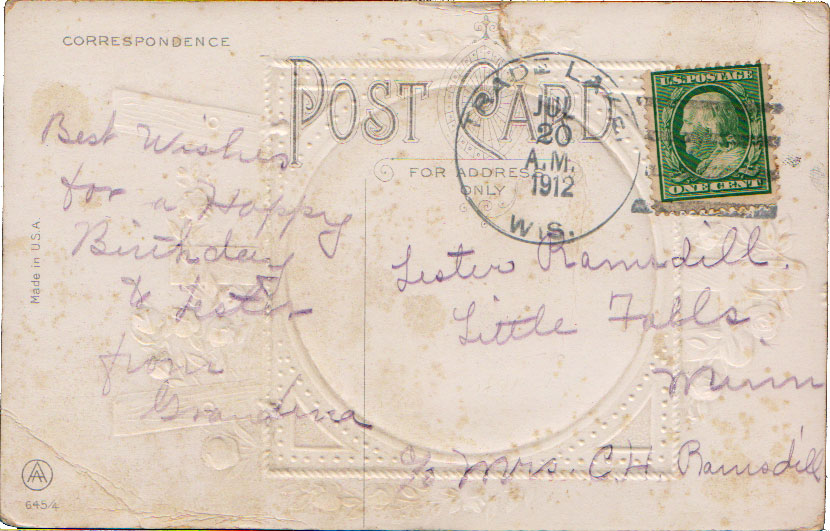 CORRESPONDENCE
POST CARD
FOR ADDRESS
ONLY
TRADE LAKE,
JUL
20
A.M.
1912
WIS.
U.S. POSTAGE
ONE CENT
Best Wishes
for a Happy
Birthday
to Lester
from
Grandma
Lester Ramsdill.
Little Falls
Minn
c/o Mrs. C H. Ramsdill
Made in U.S.A.
AA
645/4